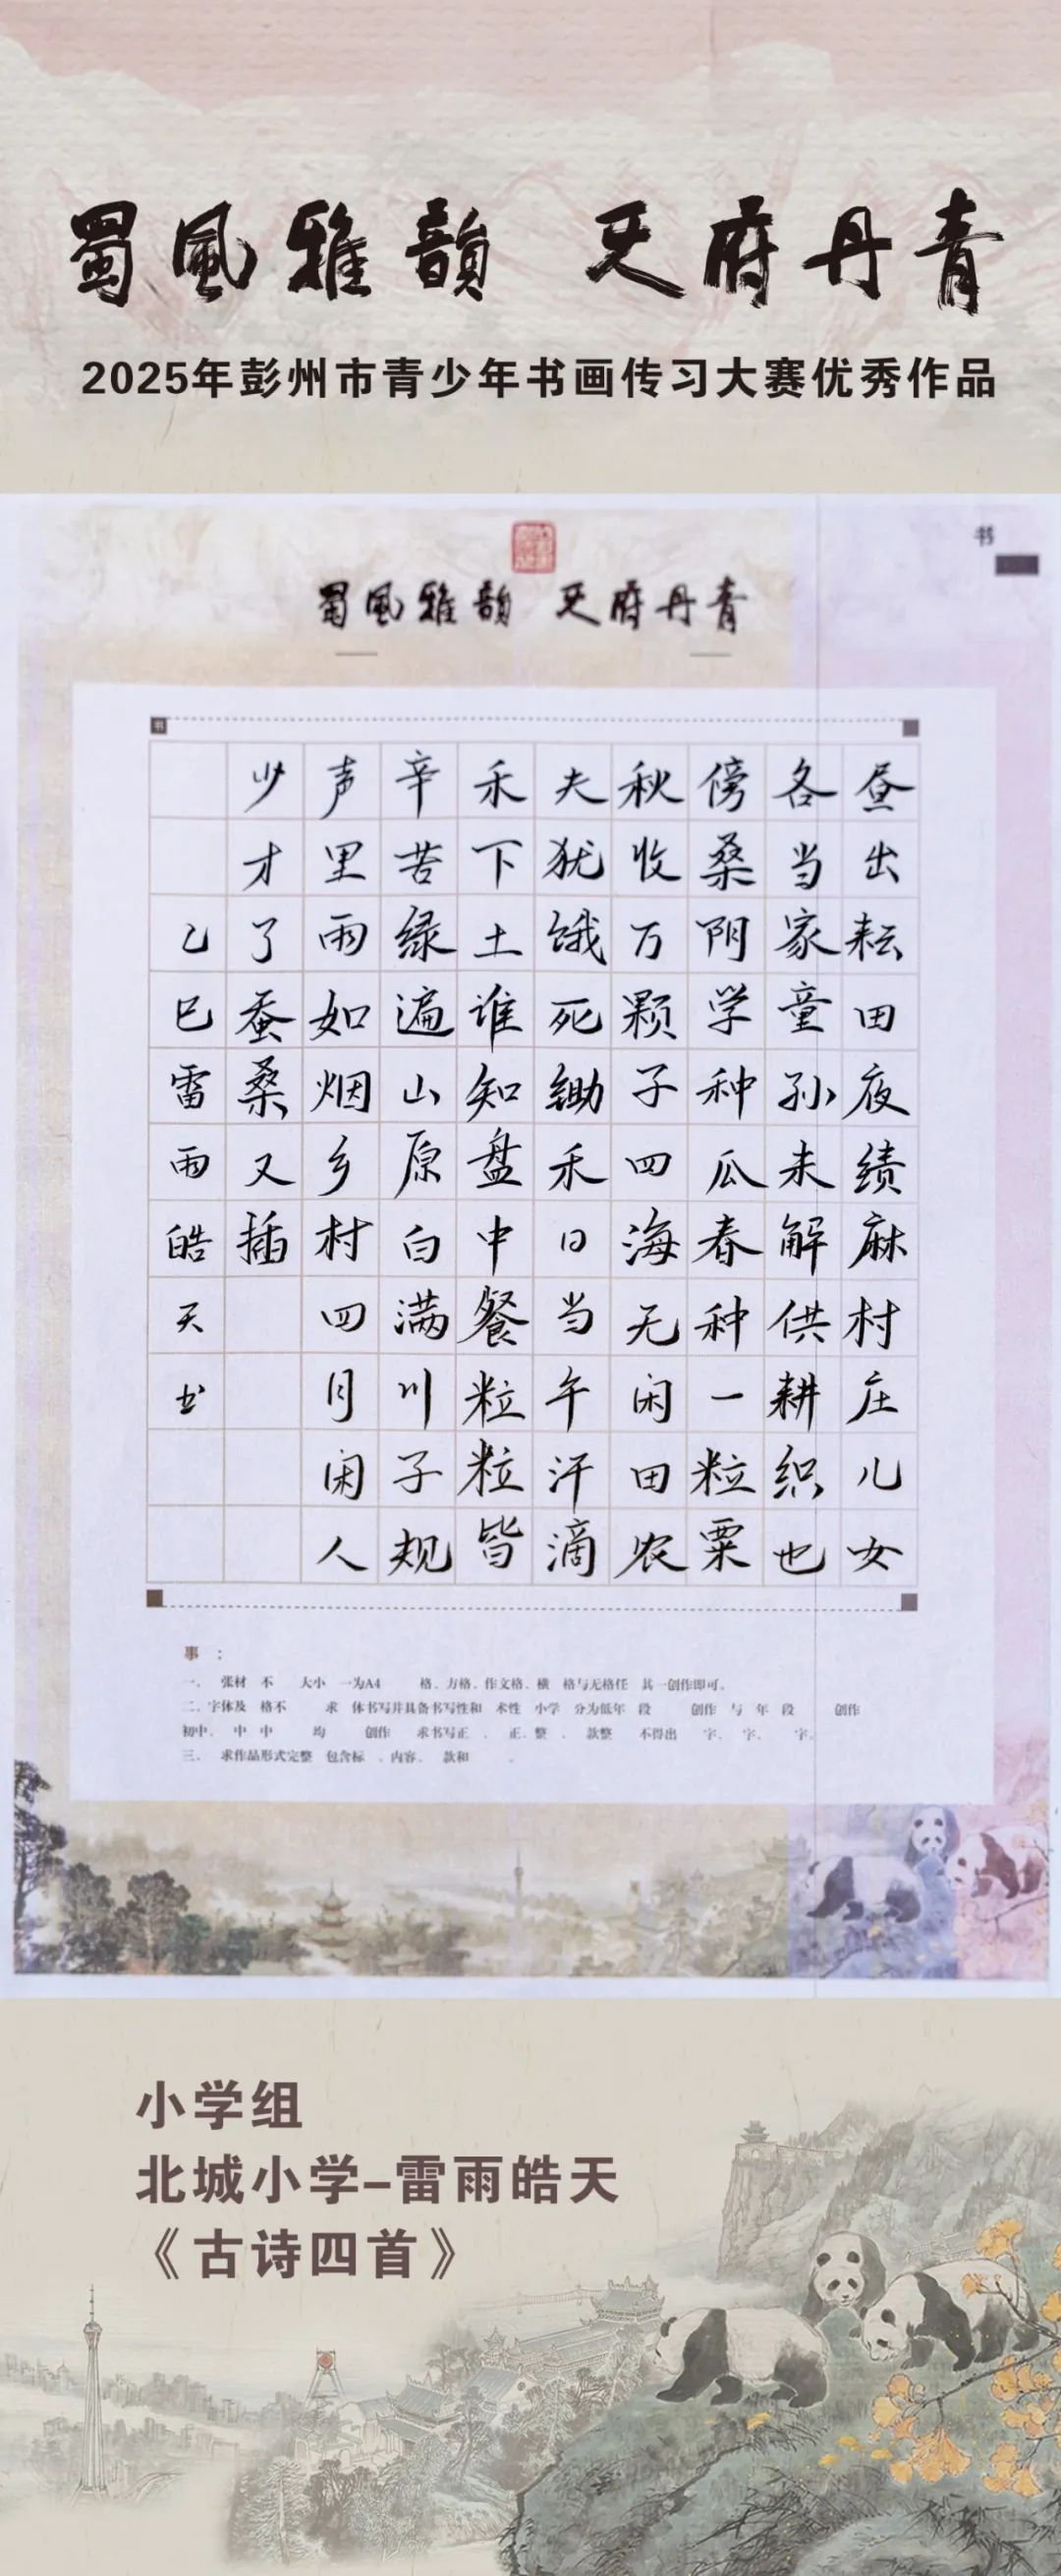 蜀風雅韻 天府丹青
2025年彭州市青少年书画传习大赛优秀作品
书
蜀風雅韻 天府丹青
书
昼出耘田夜绩麻村庄儿女
各当家童孙未解供耕织也
傍桑阴学种瓜春种一粒粟
秋收万颗子四海无闲田农
夫犹饿死锄禾日当午汗滴
禾下土谁知盘中餐粒粒皆
辛苦绿遍山原白满川子规
声里雨如烟乡村四月闲人
少才了蚕桑又插
乙巳雷雨皓天书
事 :
一、 张材 不 大小 一为A4 格、方格、作文格、横 格与无格任 其一创作即可。
二、字体及 格不 求 体书写并具备书写性和 术性 小学 分为低年 段 创作 与 年 段 创作
初中、 中 中 均 创作 求书写正 、 正、整 、 款整 不得出 字、 字、 字。
三、 求作品形式完整 包含标 、内容、 款和 。
小学组
北城小学-雷雨皓天
《古诗四首》